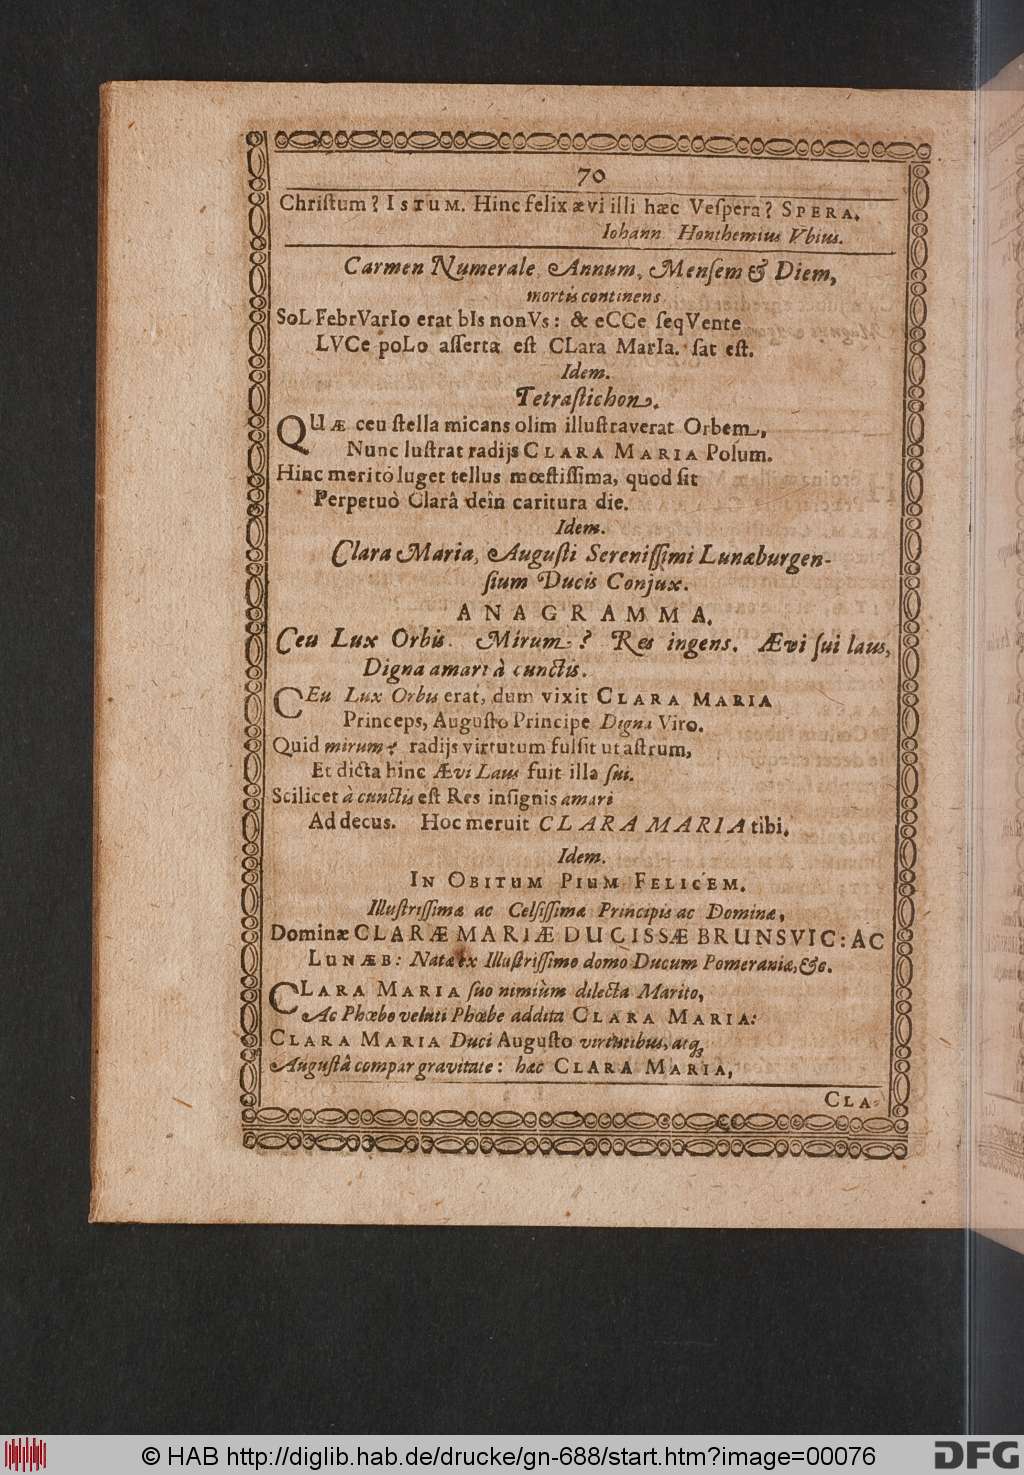 70
Chriſtum? ISTUM. Hinc felix ævi illi hæc Veſpera? SPERA.
Iohann Honthemius Vbius.
Carmen Numerale, Annum, Menſem & Diem,
mortis continens
SoL FebrVarIo erat bIs nonVs: & eCCe ſeqVente
LVCe poLo aſſerta eſt CLara MarIa. ſat eſt.
Idem.
Tetraſtichon.
QUÆ ceu ſtella micans olim illuſtraverat Orbem,
Nunc luſtrat radijs CLARA MARIA Polum.
Hinc meritò luget tellus mœſtiſſima, quod ſit
Perpetuò Clarâ dein caritura die.
Idem.
Clara Maria, Auguſti Sereniſſimi Lunæburgen-
ſium Ducis Conjux.
ANAGRAMMA.
Ceu Lux Orbis. Mirum? Res ingens. Ævi ſui laus,
Digna amari à cunctis.
CEu Lux Orbis erat, dum vixit CLARA MARIA
Princeps, Auguſto Principe Digna Viro.
Quid mirum? radijs virtutum fulſit ut aſtrum,
Et dicta hinc Ævi Laus fuit illa ſui.
Scilicet à cunctis eſt Res inſignis amari
Ad decus. Hoc meruit CLARA MARIA tibi.
Idem.
IN OBITUM PIUM FELICEM.
Illuſtriſſimæ ac Celſiſſimæ Principis ac Dominæ,
Dominæ CLARÆ MARIÆ DUCISSÆ BRUNSVIC: AC
LUNÆB: Natæ ex Illuſtriſſimo domo Ducum Pomeraniæ, &c.
CLARA MARIA ſuo nimiùm dilecta Marito,
Ac Phœbo veluti Phœbe addita CLARA MARIA:
CLARA MARIA Duci Auguſto virtutibus, atq;
Auguſtâ compar gravitate: hæc CLARA MARIA,
CLA-
© HAB http://diglib.hab.de/drucke/gn-688/start.htm?image=00076
DFG